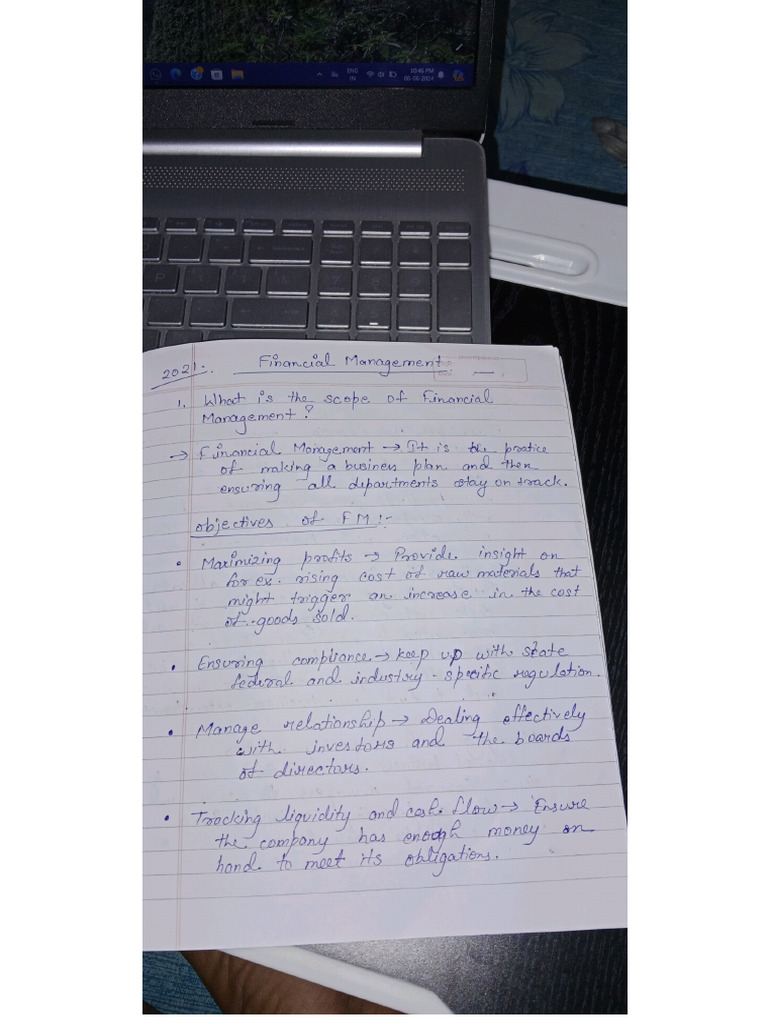 ENG
IN
10:45 PM
06-06-2024
P
2021.
Financial Management
1. What is the scope of Financial
Management?
→ Financial Management → It is the practice
of making a business plan and then
ensuring all departments stay on track.
objectives of FM:-
• Maximizing profits → Provide insight on
for ex. rising cost of raw materials that
might trigger an increase in the cost
of goods sold.
• Ensuring compliance → keep up with state
federal and industry-specific regulation.
• Manage relationship → Dealing effectively
with investors and the boards
of directors.
• Tracking liquidity and cash flow → Ensure
the company has enough money on
hand to meet its obligations.